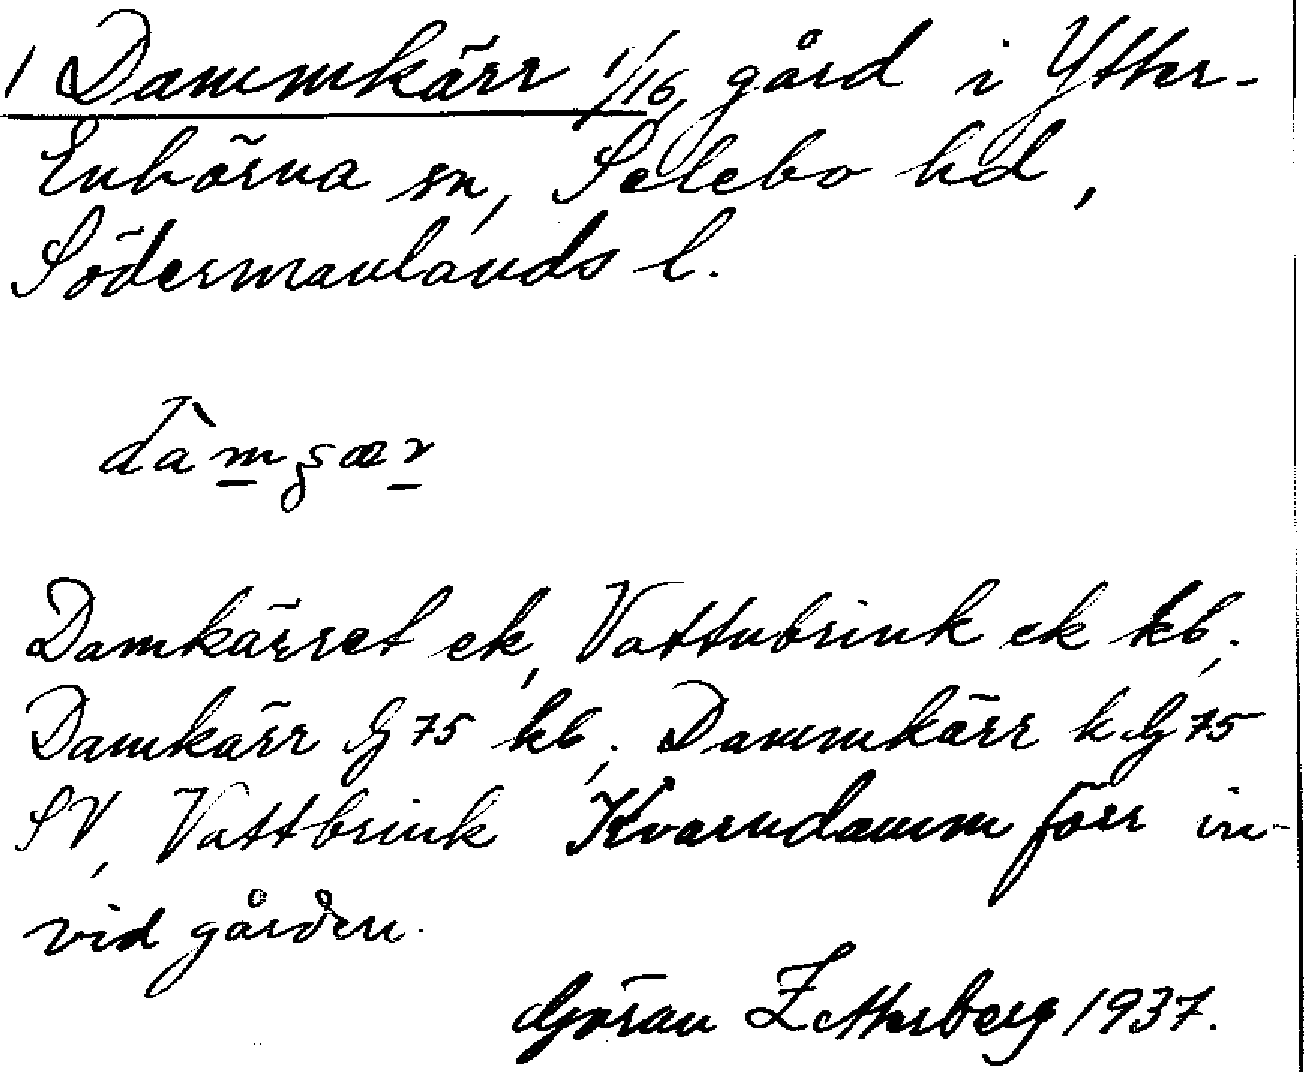 1 Dammkärr 1/16, gård i Ytter-
Enhörna sn, Selebo hd,
Södermanlands l.
Damkärret ek, Vattubrink ek kb;
Damkärr G 75 kb; Dammkärr k G 75
SV, Vattbrink Kvarndamm förr in-
vid gården.
Göran Zetterberg 1937.